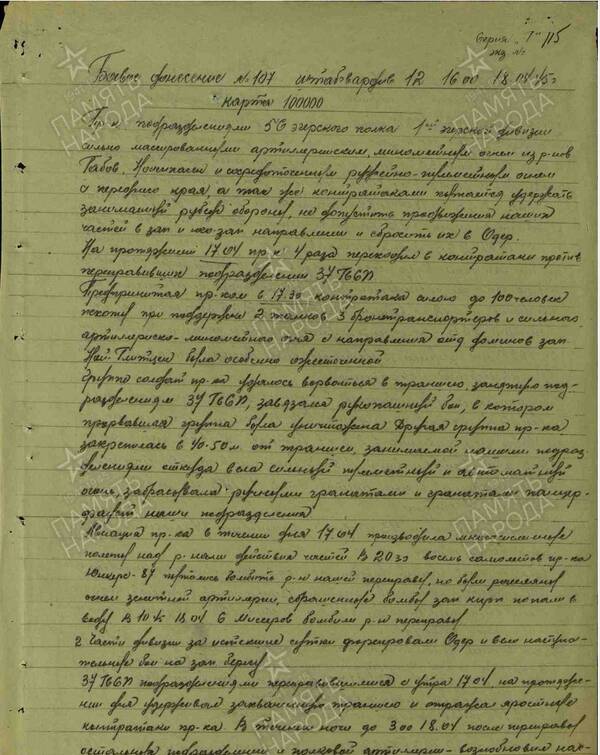 Серия "Г" 115
экз №
Боевое донесение № 107 штабгвардив 12 16 00 18.04.45г
карта 100000
Пр-к подразделениями 56 егерского полка 1ой егерской дивизии
сильно массированным артиллерийским, минометным огнем из р-нов
и сосредоточенным ружейно-пулеметным огнем
с переднего края а так же контратаками пытается удержать
занимаемый рубеж обороны, не допустить продвижения наших
частей в зап и юго зап направлении и сбросить их в Одер.
На протяжении 17 04 пр-к 4 раза переходил в контратаки против
переправивших подразделений 37 ГвСП
Предпринятая пр-ком в 17.30 контратака силою до 100 человек
пехоты при поддержке 2 танков 3 бронетранспортеров и сильного
артиллериско-минометного огня с направления отд домиков зап.
была особенно ожесточенной
Группе солдат пр-ка удалось ворваться в траншею занятую под-
разделением 37 ГвСП, завязался рукопашный бой, в котором
прорвавшая группа была уничтожена Другая группа пр-ка
закрепилась в 40-50 м. от траншеи, занимаемой нашими подраз
делениями откуда вела сильный пулеметный и автоматный
огонь, забрасывала ручными гранатами и гранатами панцер-
фауст наши подразделения
Авиация пр-ка в течении дня 17.04 производила многочисленные
полеты над р-нами действия частей В 20 30 восемь самолетов пр-ка
Юнкерс-87 пытались бомбить р-н нашей переправы, но были рассеяны
огнем зенитной артиллерии, сброшенные бомбы попали в
воду В 10 18 04 6 Мисеров бомбили р-н переправы
2 Части дивизии за истекшие сутки форсировали Одер и вели наступа-
тельные бои на зап берегу
37 ГвСП подразделениями переправившимися с утра 17 04. на протяже-
нии дня удерживал захваченную траншею и отражал яростные
контратаки пр-ка В течении ночи до 3 00 18.04 после переправы
остальных подразделений и полковой артиллерии - возобновил нас-
ПАМЯТЬ
НАРОДА